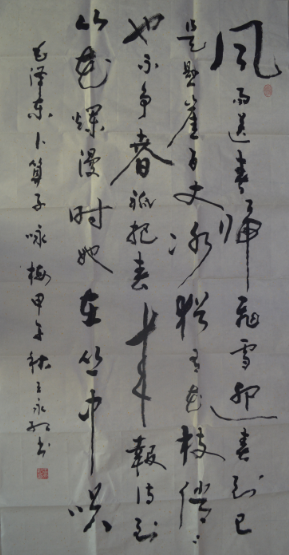 风雨送春归飛雪迎春到已
是悬崖百丈冰犹有花枝俏々
也不争春祇把春来報待到
山花爛漫时她在丛中咲
毛泽东卜算子咏梅甲午秋王永书